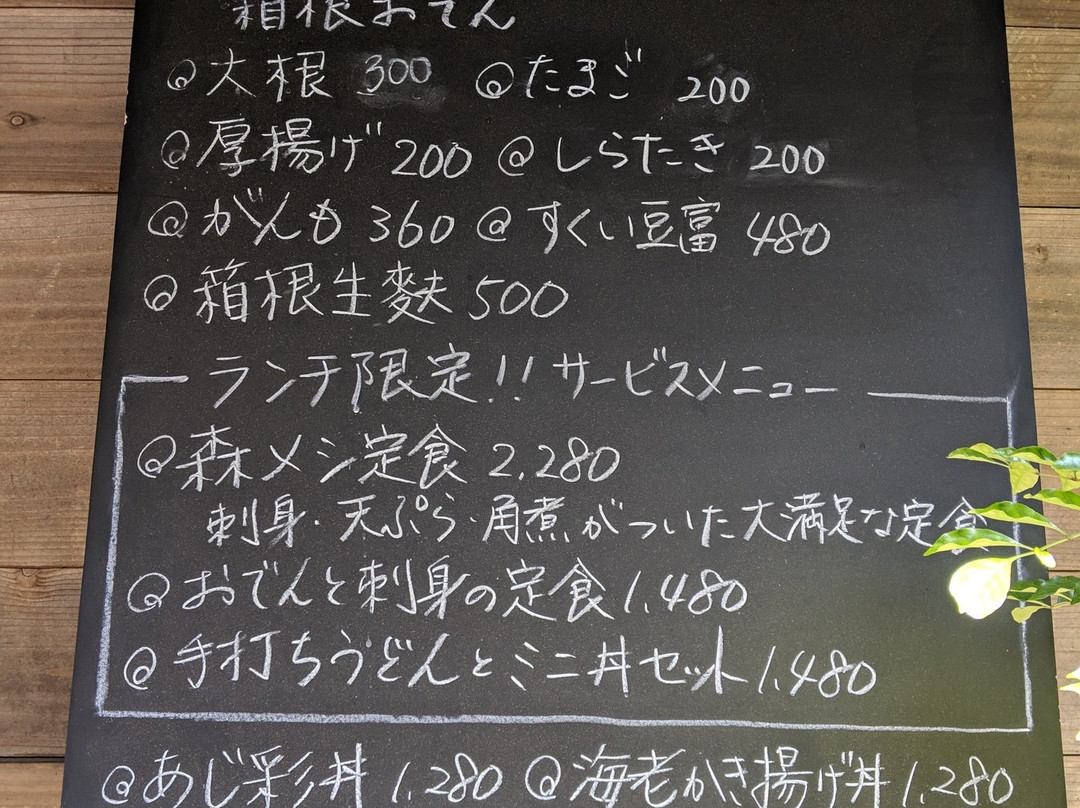 箱根おでん
@大根 300 @たまご 200
@厚揚げ 200 @しらたき 200
@がんも 360 @すくい豆富 480
@箱根生麩 500
ランチ限定!! サービスメニュー
@森メシ定食 2,280
刺身・天ぷら・角煮がついた大満足な定食
@おでんと刺身の定食 1,480
@手打ちうどんとミニ丼セット 1,480
@あじ彩丼 1,280 @海老かき揚げ丼 1,280